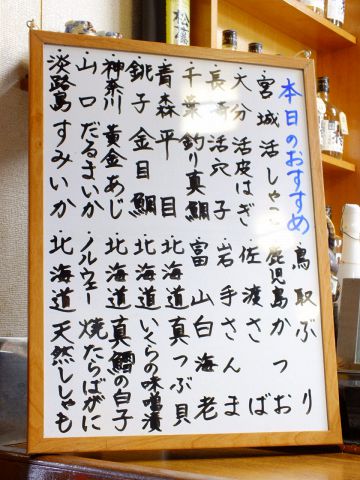 本日のおすすめ
・宮城 活しゃこ
・大分 活皮はぎ
・長崎 活穴子
・千葉 釣り真鯛
・青森 平目
・銚子 金目鯛
・神奈川 黄金あじ
・山口 だるまいか
・淡路島 すみいか
・鳥取 ぶり
・鹿児島 かつお
・佐渡 さば
・岩手 さんま
・富山 白海老
・北海道 真つぶ貝
・北海道 いくらの味噌漬
・北海道 真鱈の白子
・ノルウェー 焼たらばがに
・北海道 天然ししゃも